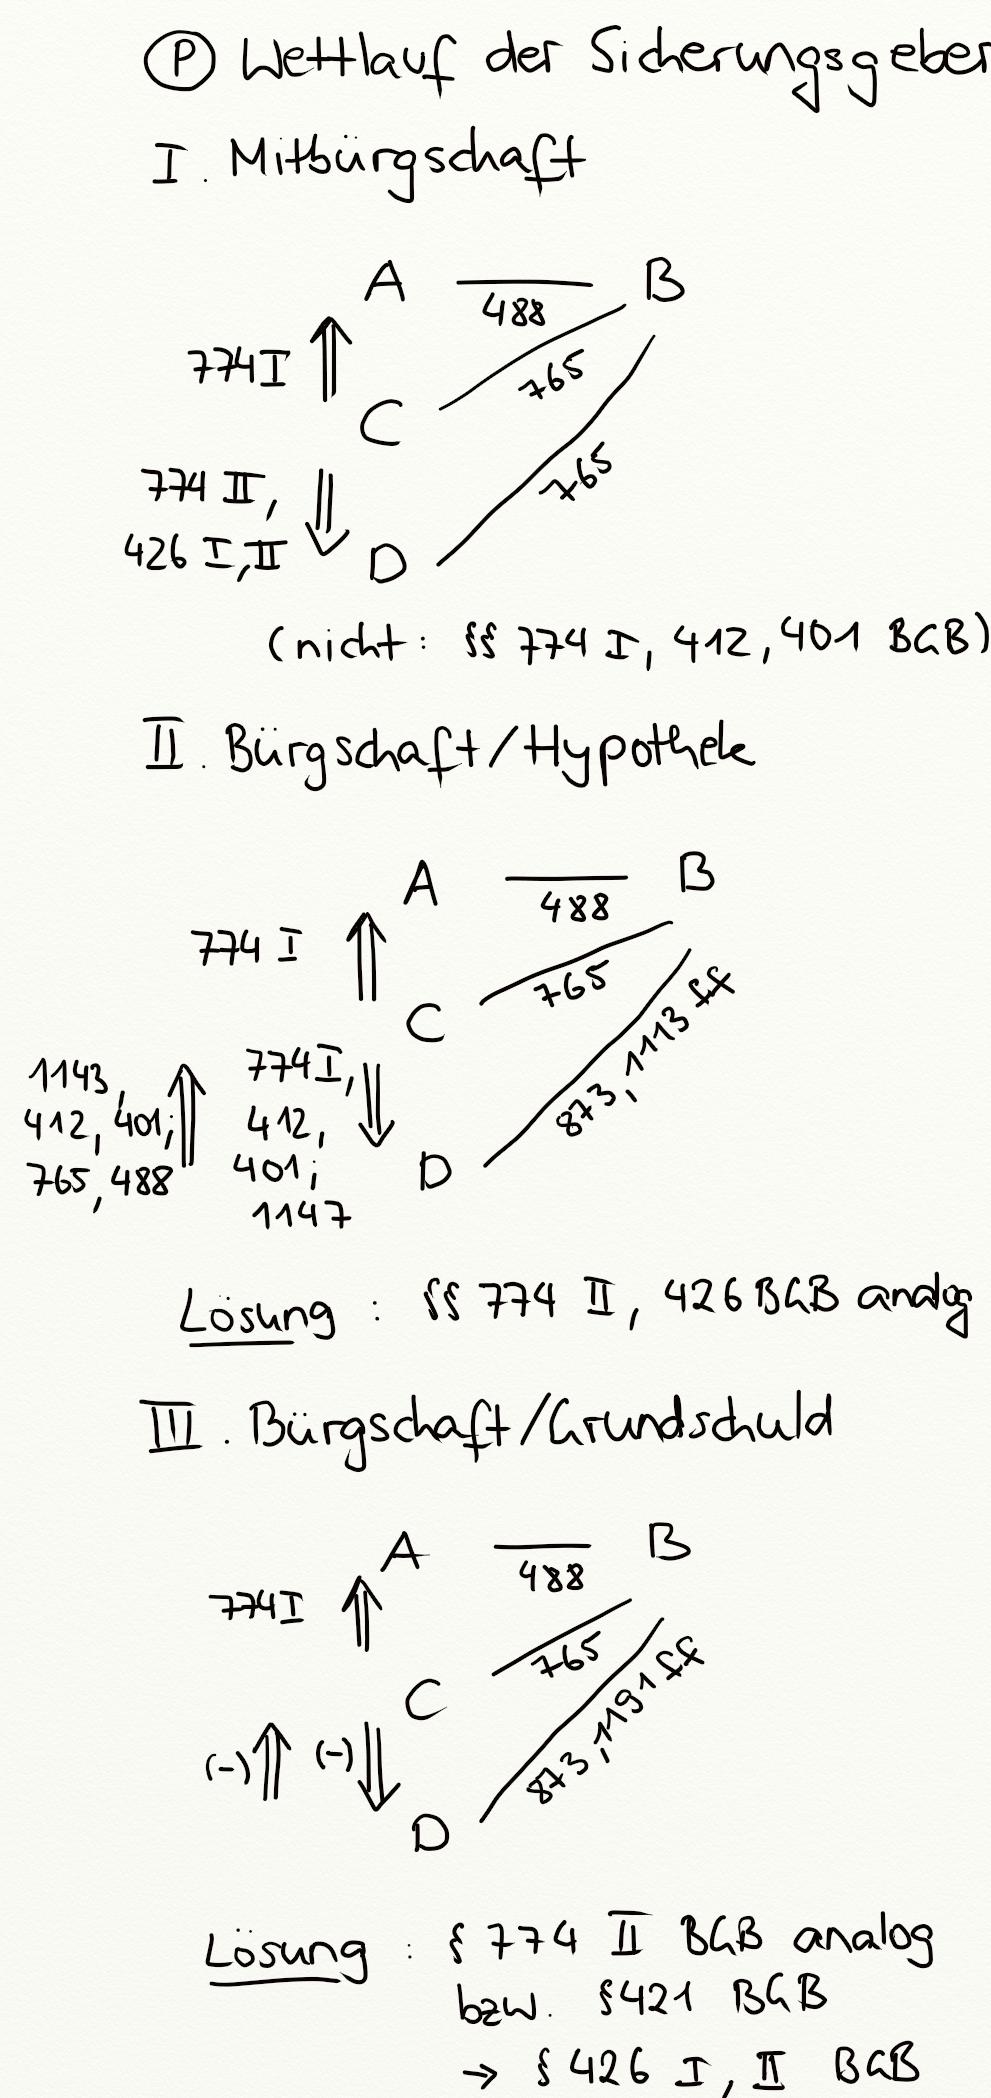 Ⓟ Wettlauf der Sicherungsgeber
I. Mitbürgschaft
A B
488
774 I
765
C
765
774 II,
426 I, II
D
(nicht: §§ 774 I, 412, 401 BGB)
II. Bürgschaft/Hypothek
A B
488
774 I
765
C
873, 1113 ff
1143,
412, 401;
765, 488
774 I,
412,
401;
1147
D
Lösung: §§ 774 II, 426 BGB analog
III. Bürgschaft/Grundschuld
A B
488
774 I
765
C
873, 1191 ff
(-) (-)
D
Lösung: § 774 II BGB analog
bzw. § 421 BGB
→ § 426 I, II BGB